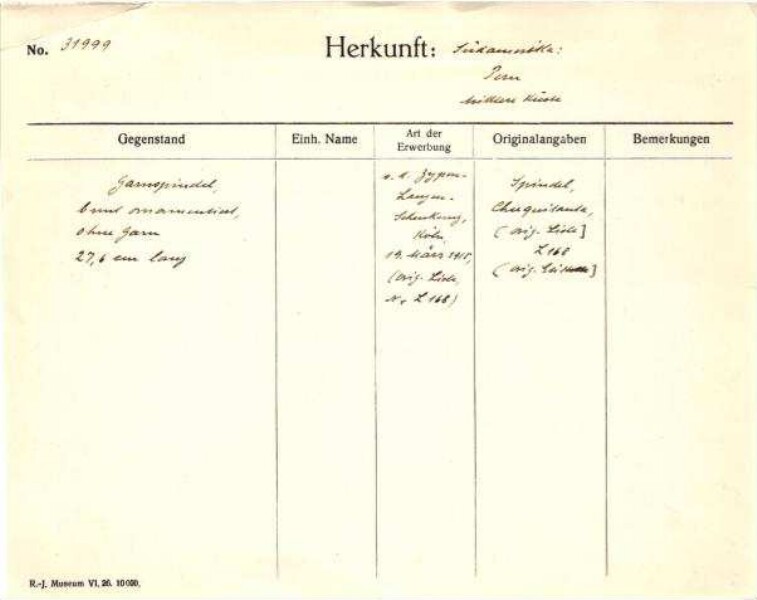 No. 31999
Herkunft: Südamerika:
Peru
Mittlere Küste
Gegenstand
Einh. Name
Art der Erwerbung
Originalangaben
Bemerkungen
Garnspindel,
bunt ornamentiert,
ohne Garn
27,6 cm lang
v. d. Zypen-
Langen-
Schenkung,
Köln,
19. März 1915,
(orig. Liste,
Nr. L 168)
Spindel,
Chuquitanta,
(orig. Liste]
L 168
(orig.
R.-J. Museum VI. 26. 10000.